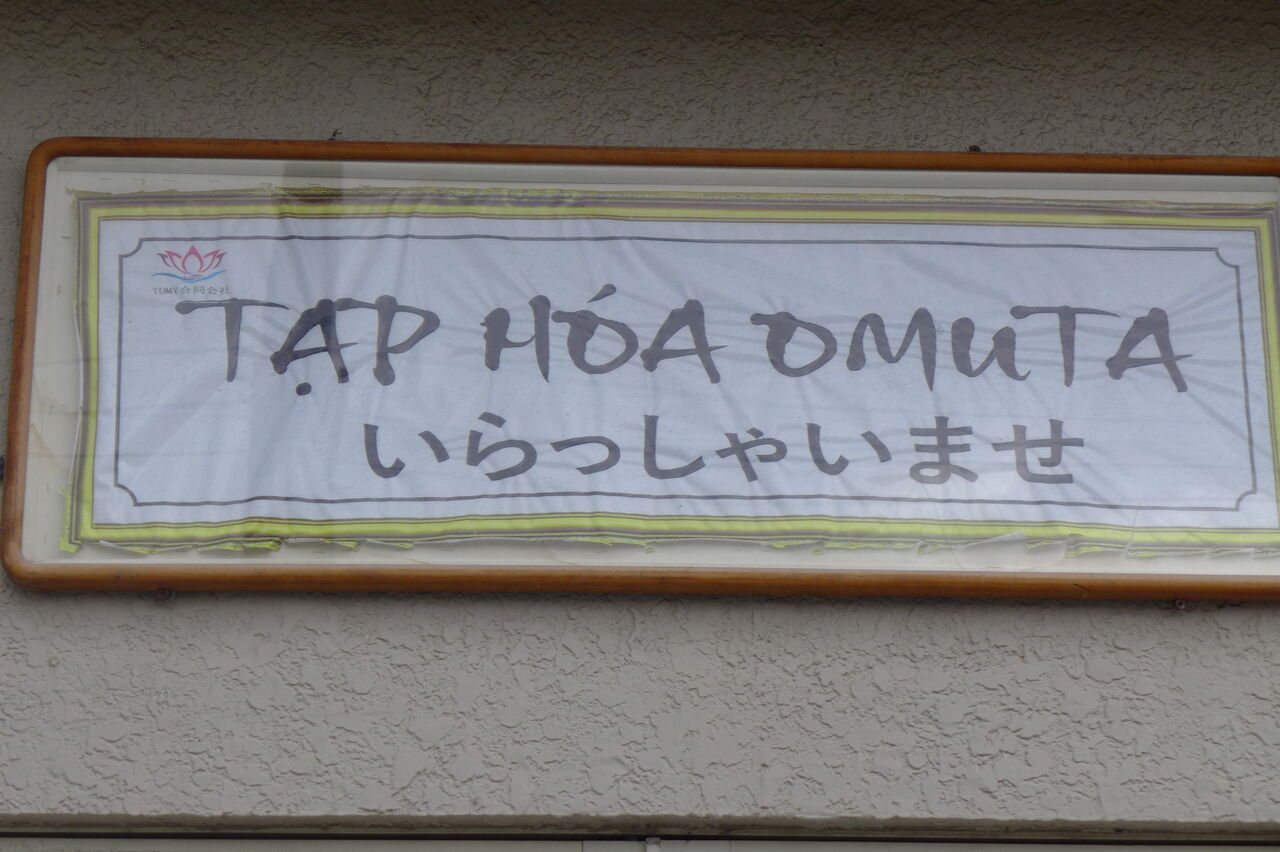 TOMY合同会社
TẠP HÓA OMUTA
いらっしゃいませ